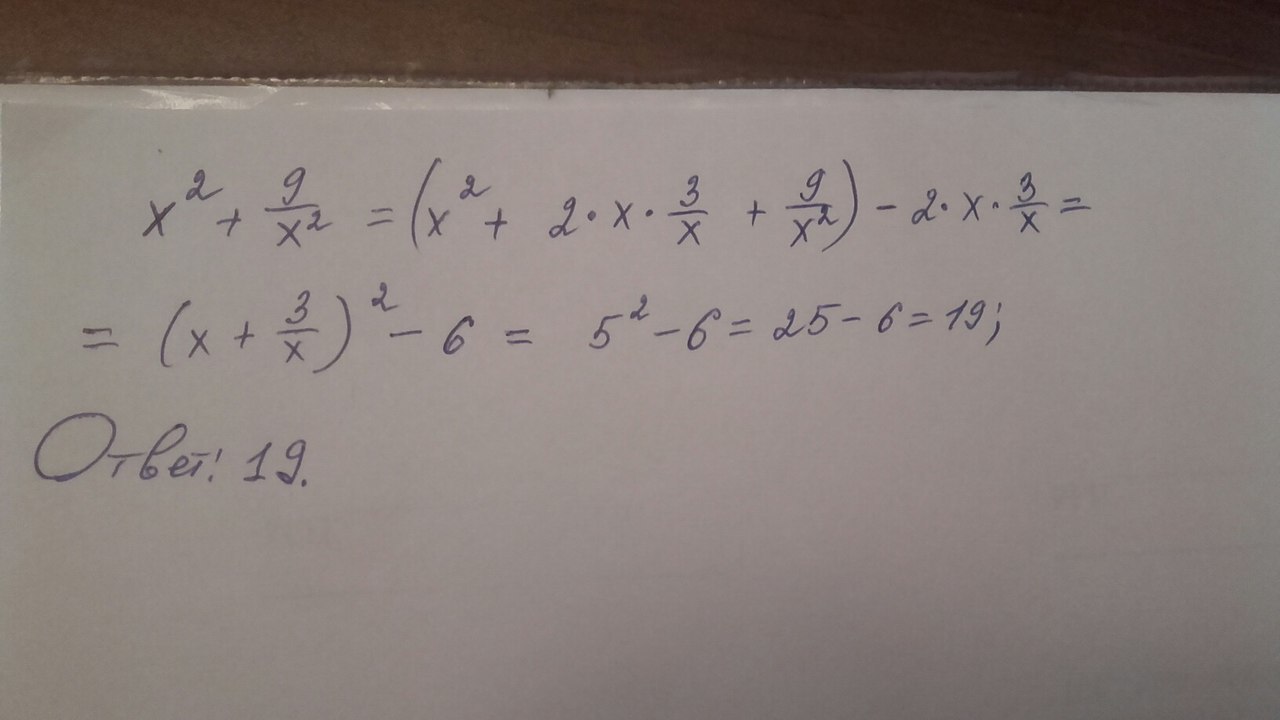 x² + 9/x² = (x² + 2·x·3/x + 9/x²) - 2·x·3/x =
= (x + 3/x)² - 6 = 5² - 6 = 25 - 6 = 19;
Ответ: 19.